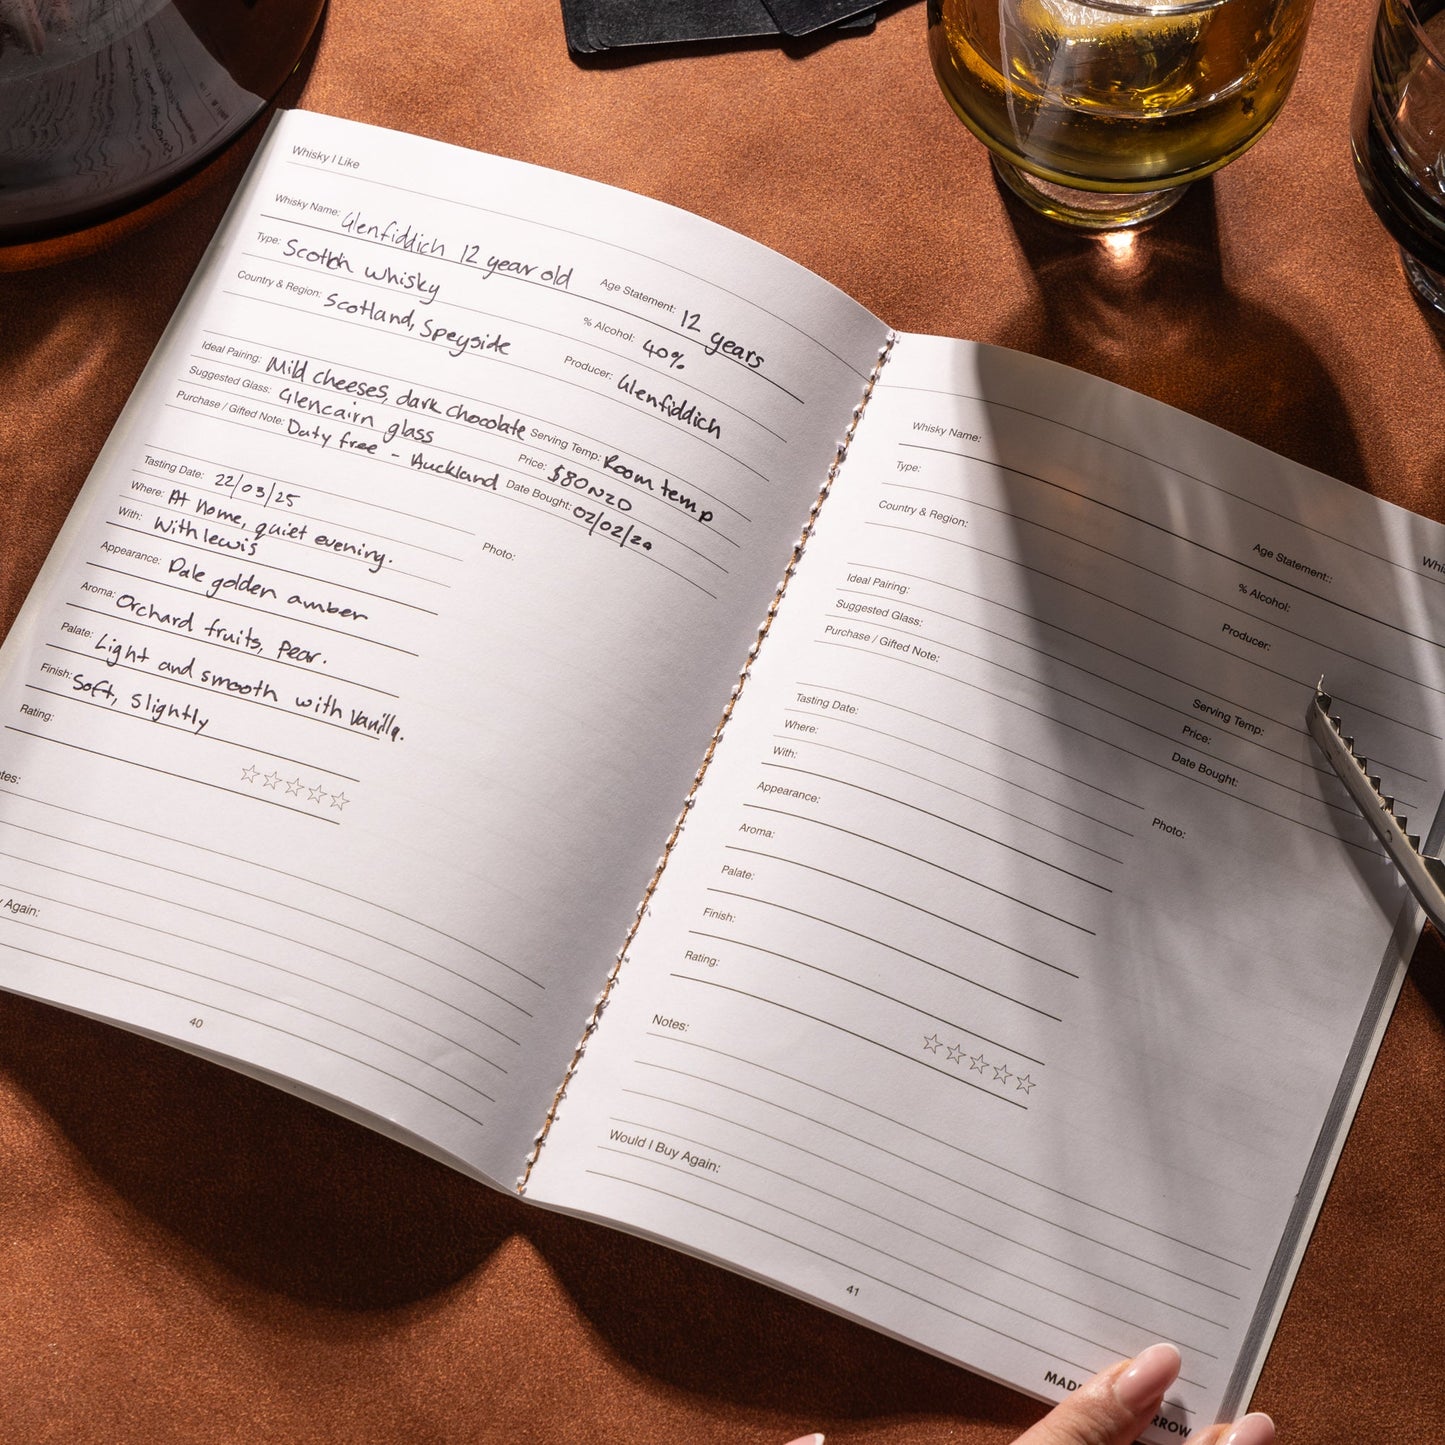 Whisky I Like
Whisky Name: Glenfiddich 12 year old
Age Statement: 12 years
Type: Scotch whisky
% Alcohol: 40%
Country & Region: Scotland, Speyside
Producer: Glenfiddich
Ideal Pairing: Mild cheeses, dark chocolate
Serving Temp: Room temp
Suggested Glass: Glencairn glass
Price: $80NZD
Purchase / Gifted Note: Duty free - Auckland
Date Bought: 02/02/20
Tasting Date: 22/03/25
Where: At home, quiet evening.
With: With lewis
Photo:
Appearance: Pale golden amber
Aroma: Orchard fruits, pear.
Palate: Light and smooth with vanilla.
Finish: Soft, slightly
Rating:
tes:
y Again:
40
Whisky Name:
Age Statement::
Type:
% Alcohol:
Country & Region:
Producer:
Ideal Pairing:
Serving Temp:
Suggested Glass:
Price:
Purchase / Gifted Note:
Date Bought:
Tasting Date:
Where:
With:
Photo:
Appearance:
Aroma:
Palate:
Finish:
Rating:
Notes:
Would I Buy Again:
41
Whis
MAD
RROW